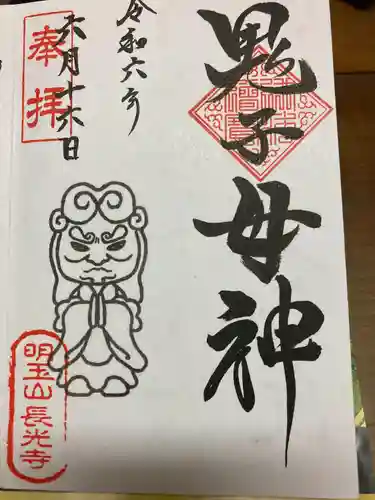 鬼子母神
令和六年
六月十六日
奉拝
明玉山長光寺